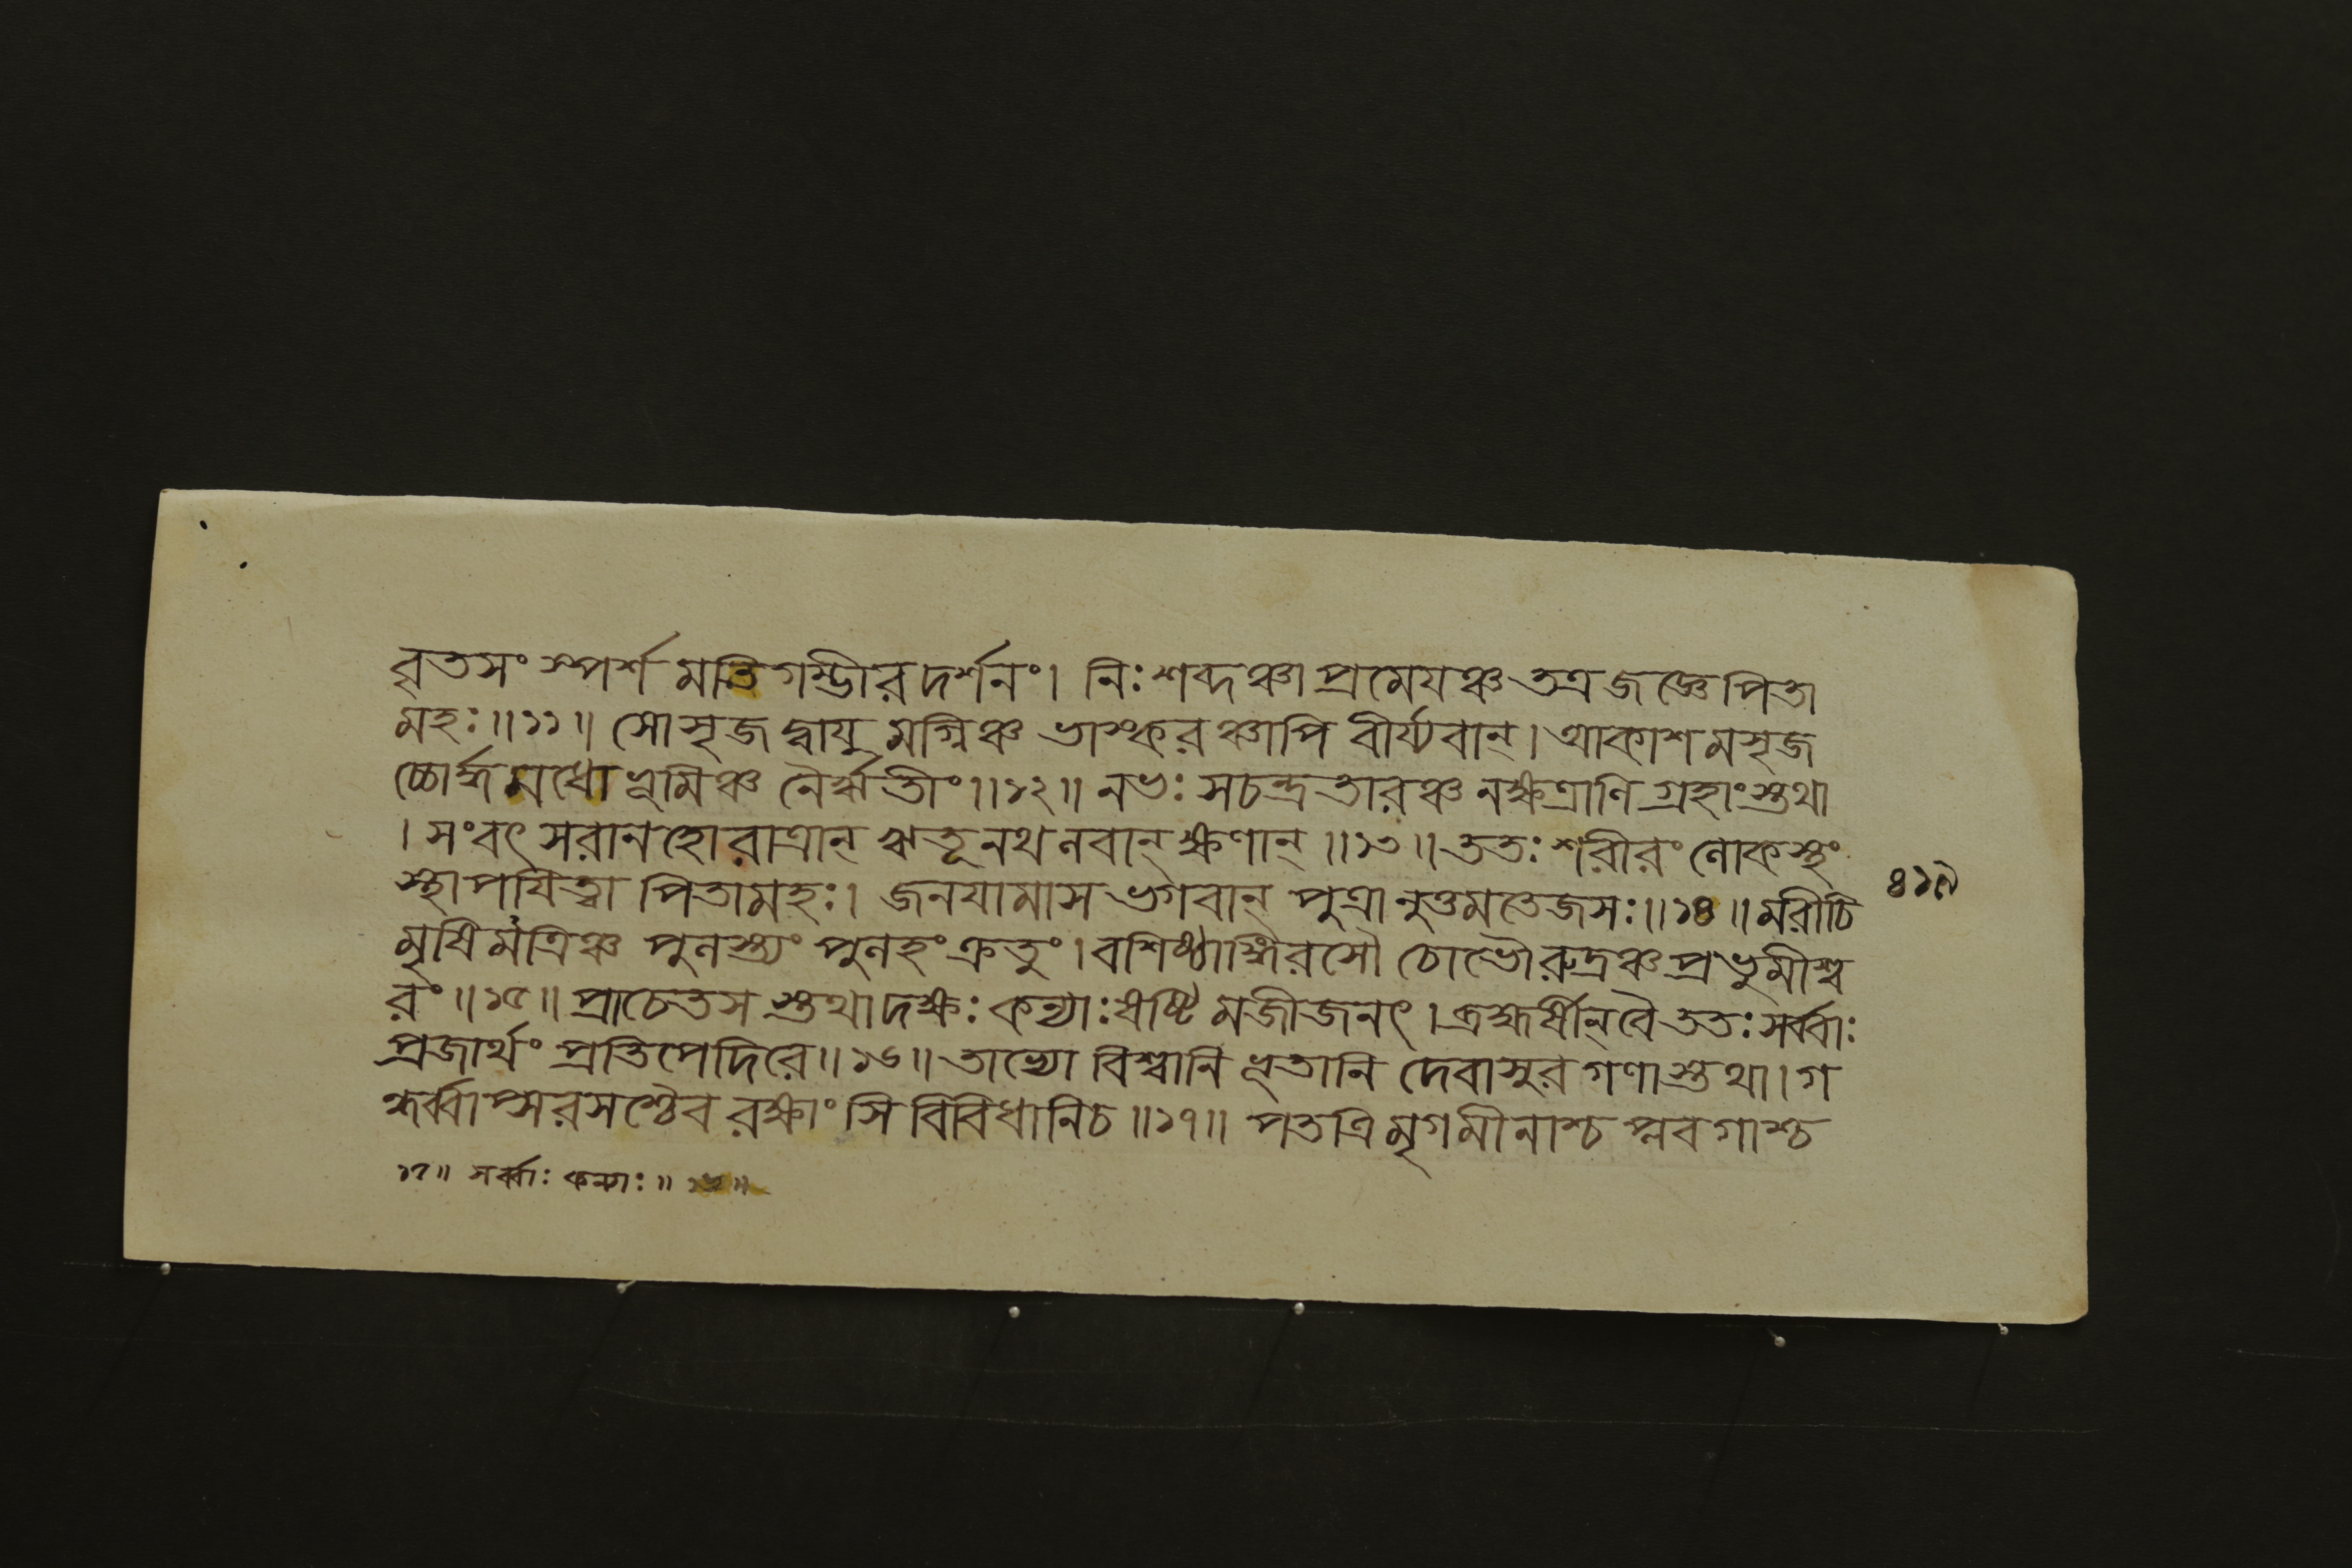 বৃতসংস্পর্শমতিগম্ভীরদর্শনং। নিঃশব্দঞ্চাপ্রমেযঞ্চ তত্র জজ্ঞে পিতা
মহঃ॥১১॥ সোসৃজদ্বাযুমগ্নিঞ্চ ভাস্করঞ্চাপি বীর্য্যবান্। আকাশমসৃজ
চ্চোর্দ্ধমধো ভূমিঞ্চ নৈর্ঋতীং॥১২॥ নভঃ সচন্দ্রতারঞ্চ নক্ষত্রাণি গ্রহাংস্তথা
। সংবৎসরানহোরাত্রান্ ঋতূনথ লবান্ ক্ষণান্॥১৩॥ ততঃ শরীরং লোকস্থং
স্থাপযিত্বা পিতামহঃ। জনযামাস ভগবান্ পুত্রানুত্তমতেজসঃ॥১৪॥ মরীচি
মৃষিমত্রিঞ্চ পুলস্ত্যং পুলহং ক্রতুং। বশিষ্ঠাঙ্গিরসৌ চোভৌ রুদ্রঞ্চ প্রভুমীশ্ব
রং॥১৫॥ প্রাচেতসস্তথা দক্ষঃ কন্যাঃ ষষ্টিমজীজনৎ। ব্রহ্মর্ষীন্ বৈ ততঃ সর্ব্বাঃ
প্রজার্থং প্রতিপেদিরে॥১৬॥ তাভ্যো বিশ্বানি ভূতানি দেবাসুরগণাস্তথা। গ
ন্ধর্ব্বাপ্সরসশ্চৈব রক্ষাংসি বিবিধানি চ॥১৭॥ পতত্রিমৃগমীনাশ্চ প্লবগাশ্চ
১৭॥ সর্ব্বাঃ কন্যাঃ॥ ১৬॥
৪১৯